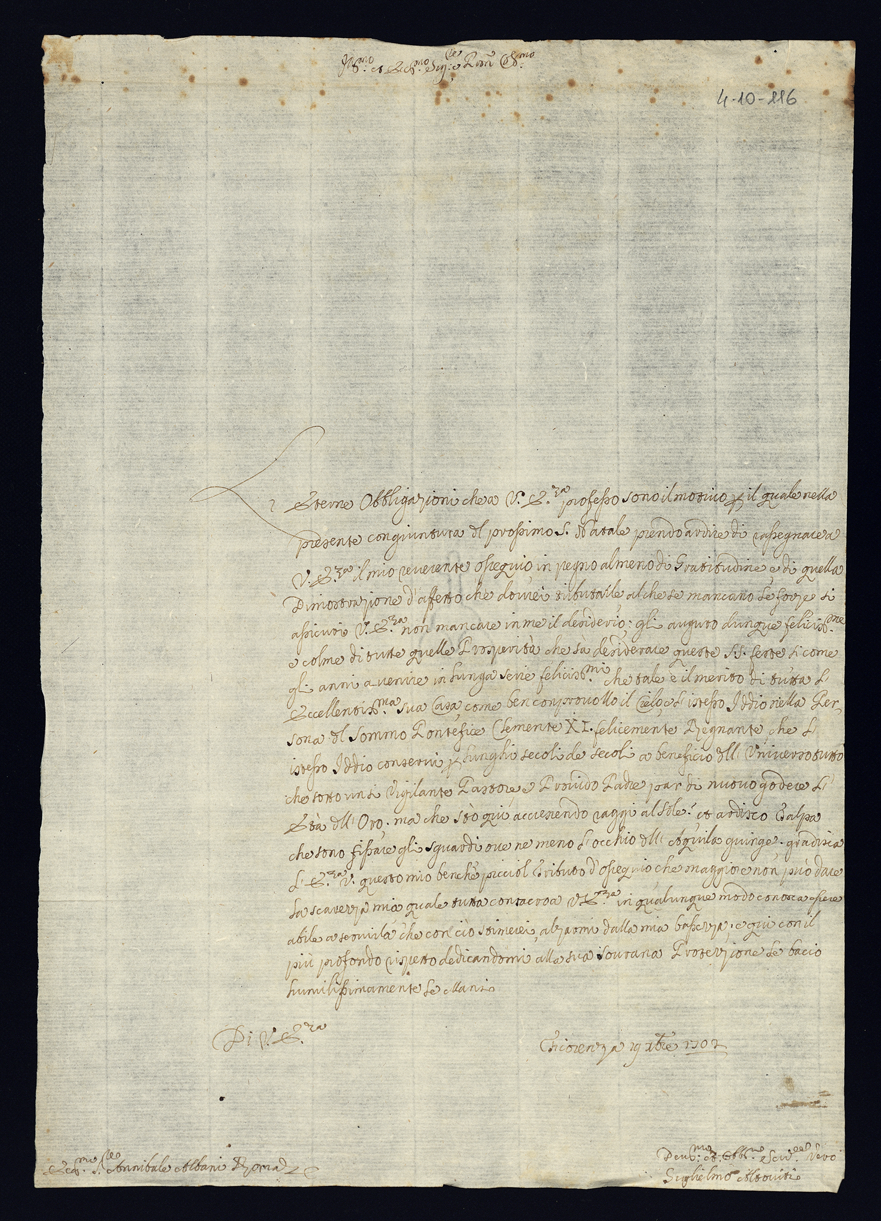 Ill.mo et Ecc.mo Sig.re Pron Col.mo
4-10-116
L' Eterne Obbligazioni che a V. E.za professo sono il motivo p il quale nella
presente congiuntura del prossimo S. Natale prendo ardire di rassegnare a
V. E.za il mio reverente ossequio in pegno almeno di Gratitudine e di quella
Dimostrazione d'affetto che dovrei tributarle al che se mancano le forze si
assicuri V. E.za non mancare in me il desiderio; gli auguro dunque feliciss.me
e colme di tutte quelle Prosperità che sà desiderare queste SS. feste si come
gli anni a venire in lunga serie feliciss.mi che tale è il merito di tutta l'
Eccellentiss.ma sua Casa, come ben comprovollo il Cielo e l' istesso Iddio nella Per-
sona del Sommo Pontefice Clemente XI. felicemente Regnante, che l'
istesso Iddio conservi p lunghi secoli de secoli a beneficio dell' Universo tutto
che sotto un sì Vigilante Pastore e Provido Padre par di nuovo godere l'
Età dell' Oro. ma che stò qui accrescendo raggi al Sole! et ardisco Talpa
che sono fissare gli sguardi ove ne meno l' occhio dell' Aquila giunge. gradisca
l' E.za V. questo mio benchè picciol Tributo d'ossequio che maggiore non può dare
la scarsezza mia quale tutta consacro a V. E.za in qualunque modo conosca essere
abile a servirla che con ciò stimerei alzarmi dalla mia bassezza, e qui con il
più profondo rispetto dedicandomi alla sua sovrana Protezione le bacio
humilissimamente le Mani
Di V. E.za
Fiorenza 19 Xbre 1702
Ecc.mo S.re Annibale Albani Roma
Dev.mo et Obb.mo Serv.re Vero
Guglielmo Altoviti